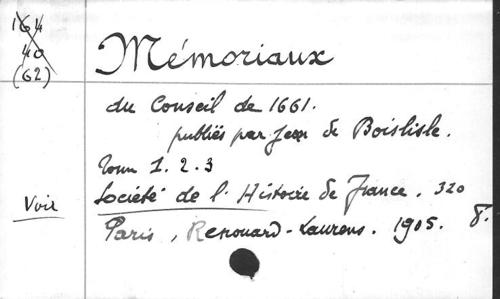 164
40
(62)
Mémoriaux
du Conseil de 1661.
publiés par Jean de Boislisle.
Tome 1. 2. 3
Voir
Société de l'Histoire de France. 320
Paris, Renouard-Laurens. 1905. 8.